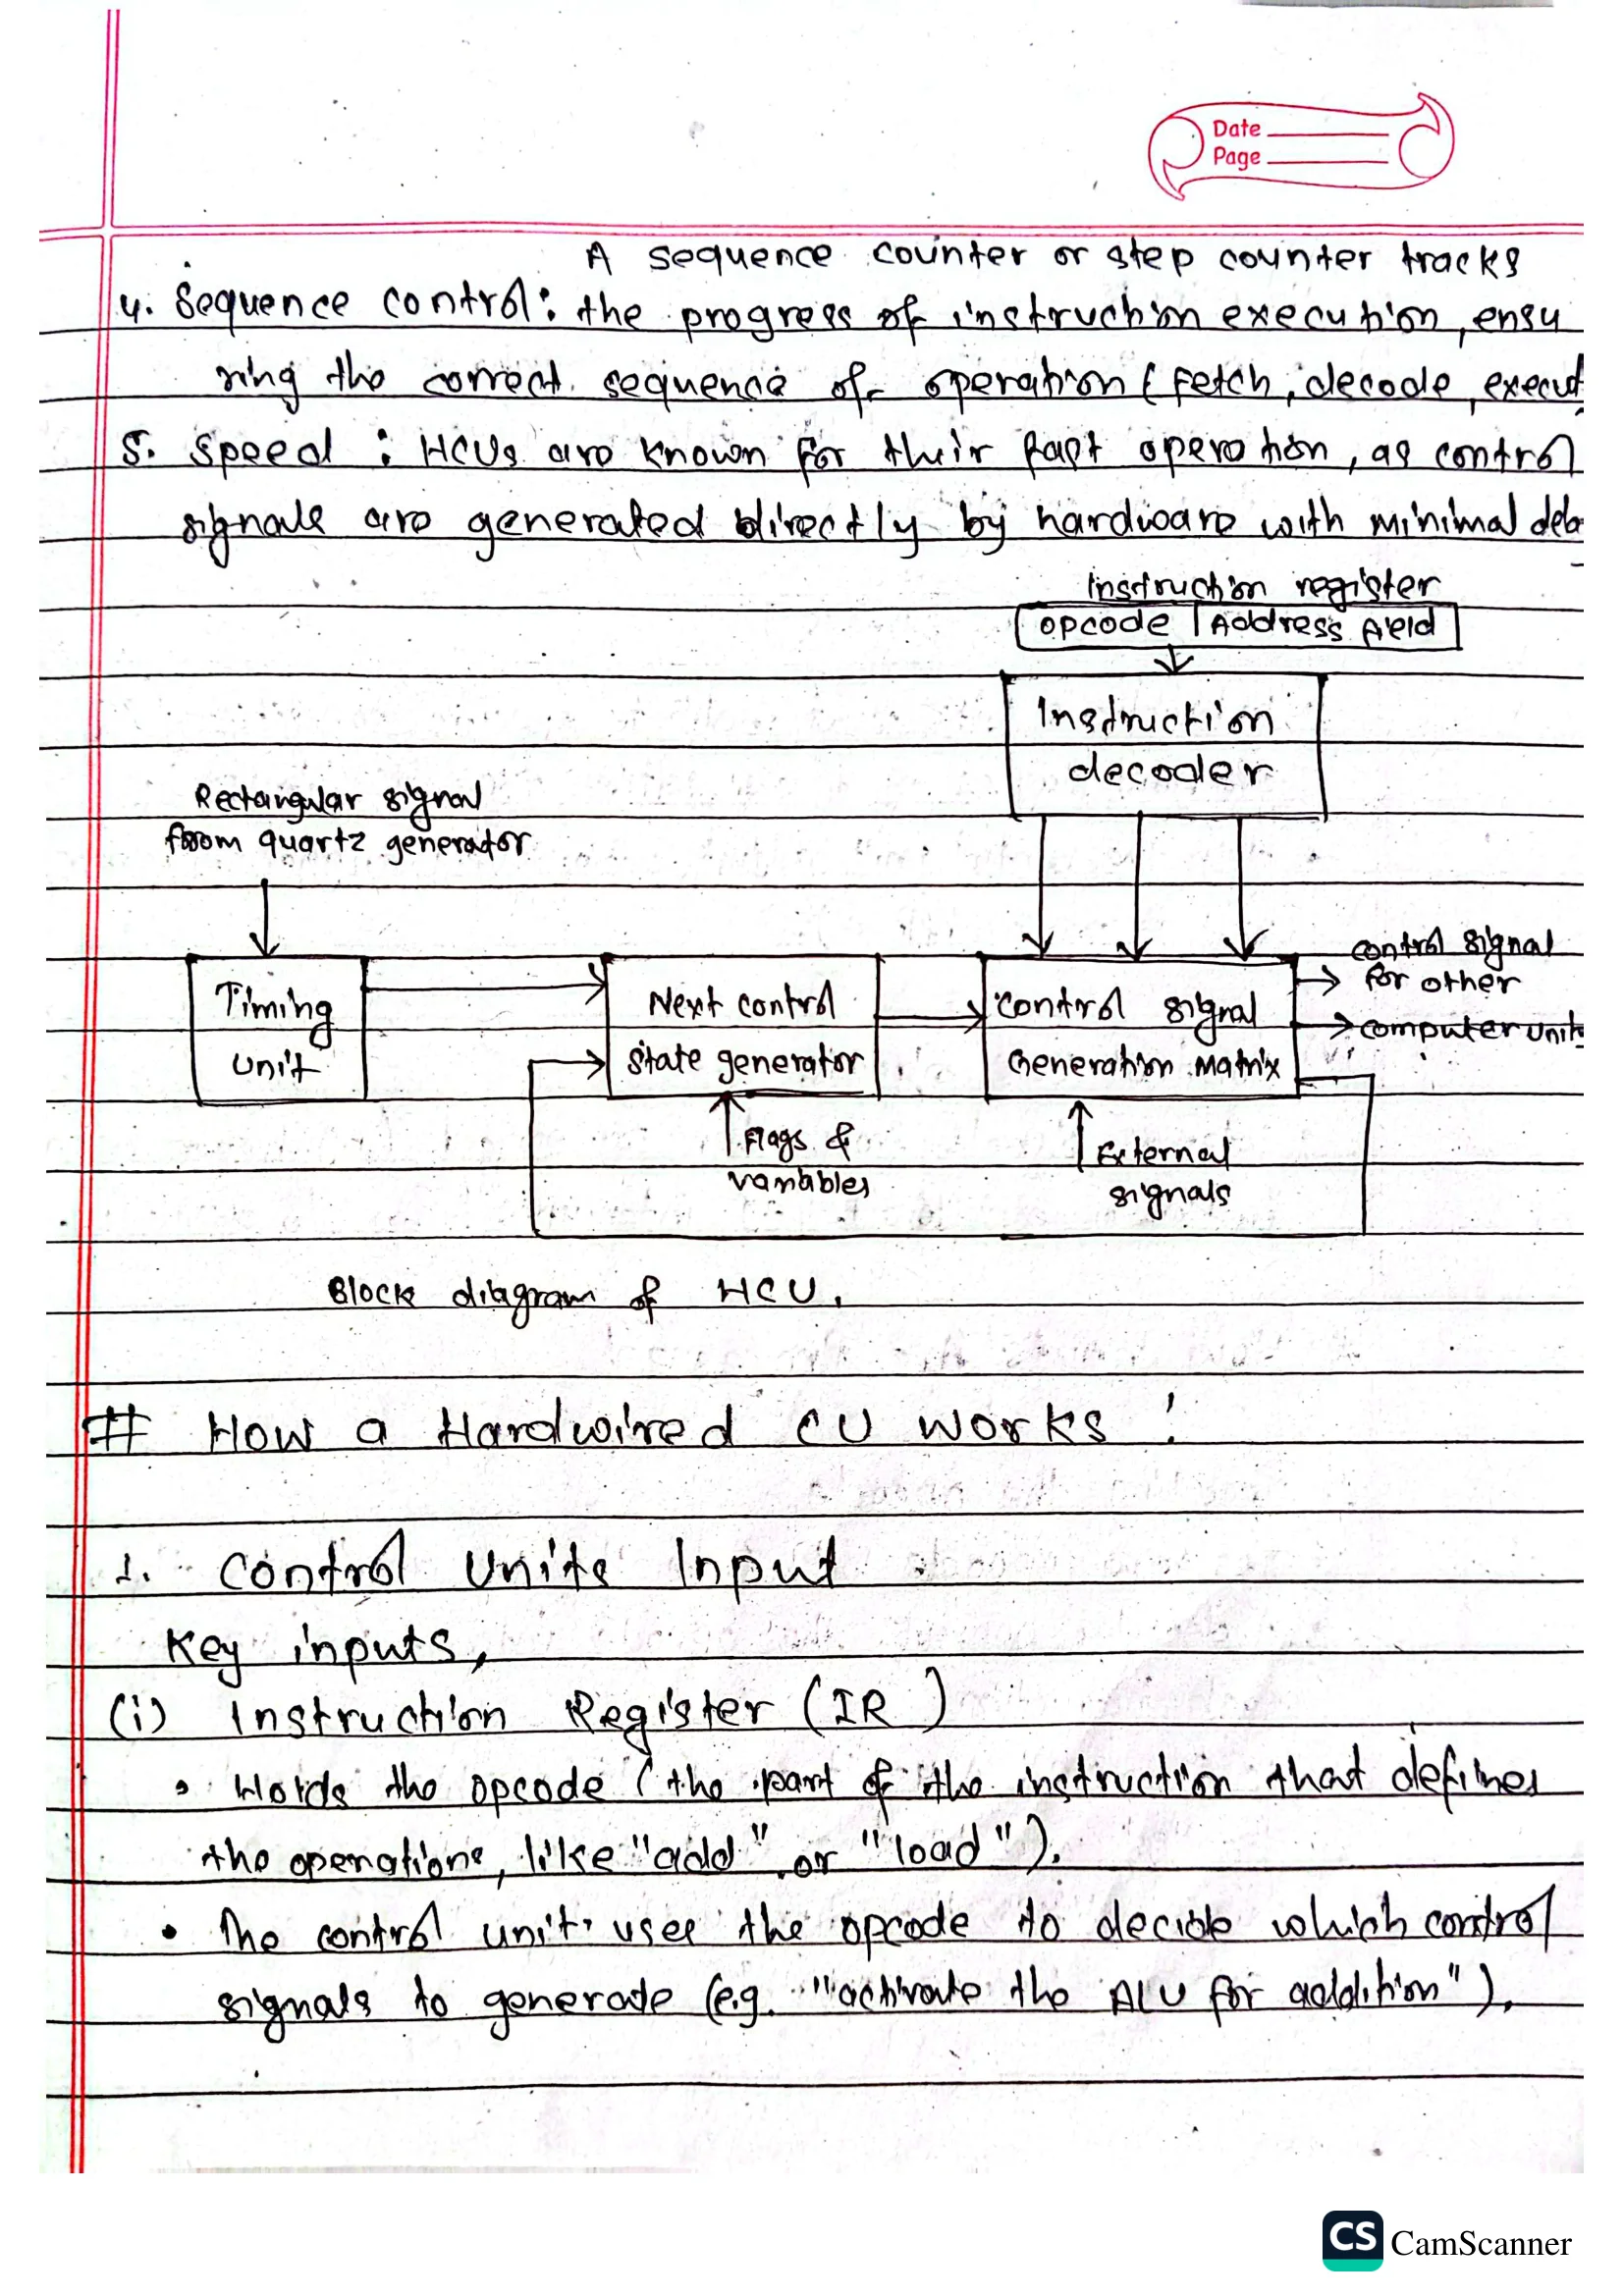 Date
Page
A sequence counter or step counter tracks
4. Sequence control: the progress of instruction execution, ensu
ring the correct sequence of operation (fetch, decode, execut
5. Speed : HCUs are known for their fast operation, as control
signals are generated directly by hardware with minimal dela
Instruction register
opcode | Address field
Instruction
decoder
Rectangular signal
from quartz generator
Timing
unit
Next control
state generator
control signal
Generation Matrix
control signal
for other
computer units
Flags &
variables
External
signals
Block diagram of HCU.
# How a Hardwired CU works :
1. Control Units Input
Key inputs,
(i) Instruction Register (IR)
• Holds the opcode (the part of the instruction that defines
the operations, like "add" or "load").
• The control unit uses the opcode to decide which control
signals to generate (e.g. "activate the ALU for addition").
CS CamScanner